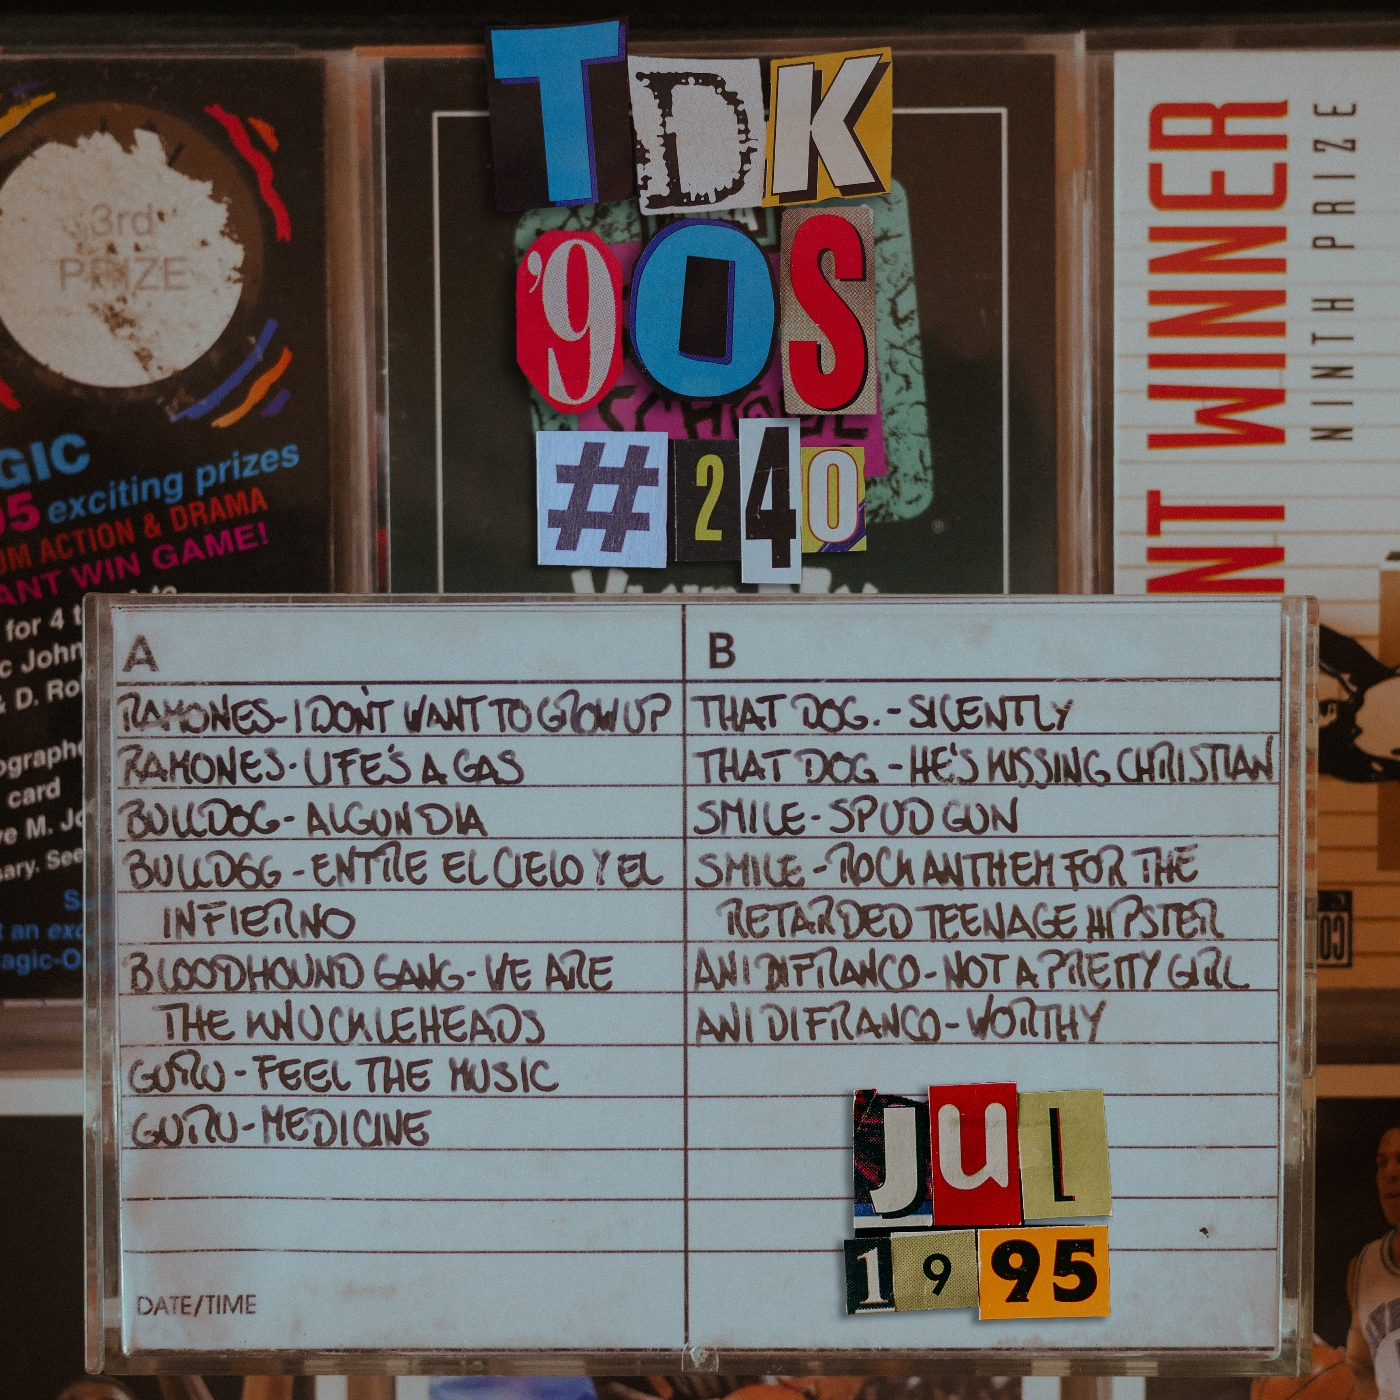 TDK
'90S
#240
3rd
PRIZE
GIC
95 exciting prizes
UM ACTION & DRAMA
ANT WIN GAME!
for 4 t
c John
& D. Ro
ograph
card
ve M. Jo
sary. See
S
t an exc
agic-O
NT WINNER
NINTH PRIZE
A
RAMONES-I DON'T WANT TO GROW UP
RAMONES-LIFE'S A GAS
BULLDOG-ALGUN DIA
BULLDOG-ENTRE EL CIELO Y EL
INFIERNO
BLOODHOUND GANG-WE ARE
THE KNUCKLEHEADS
GURU-FEEL THE MUSIC
GURU-MEDICINE
DATE/TIME
B
THAT DOG.-SILENTLY
THAT DOG-HE'S KISSING CHRISTIAN
SMILE-SPUD GUN
SMILE-ROCK ANTHEM FOR THE
RETARDED TEENAGE HIPSTER
ANI DIFRANCO-NOT A PRETTY GIRL
ANI DIFRANCO-WORTHY
Jul
1995